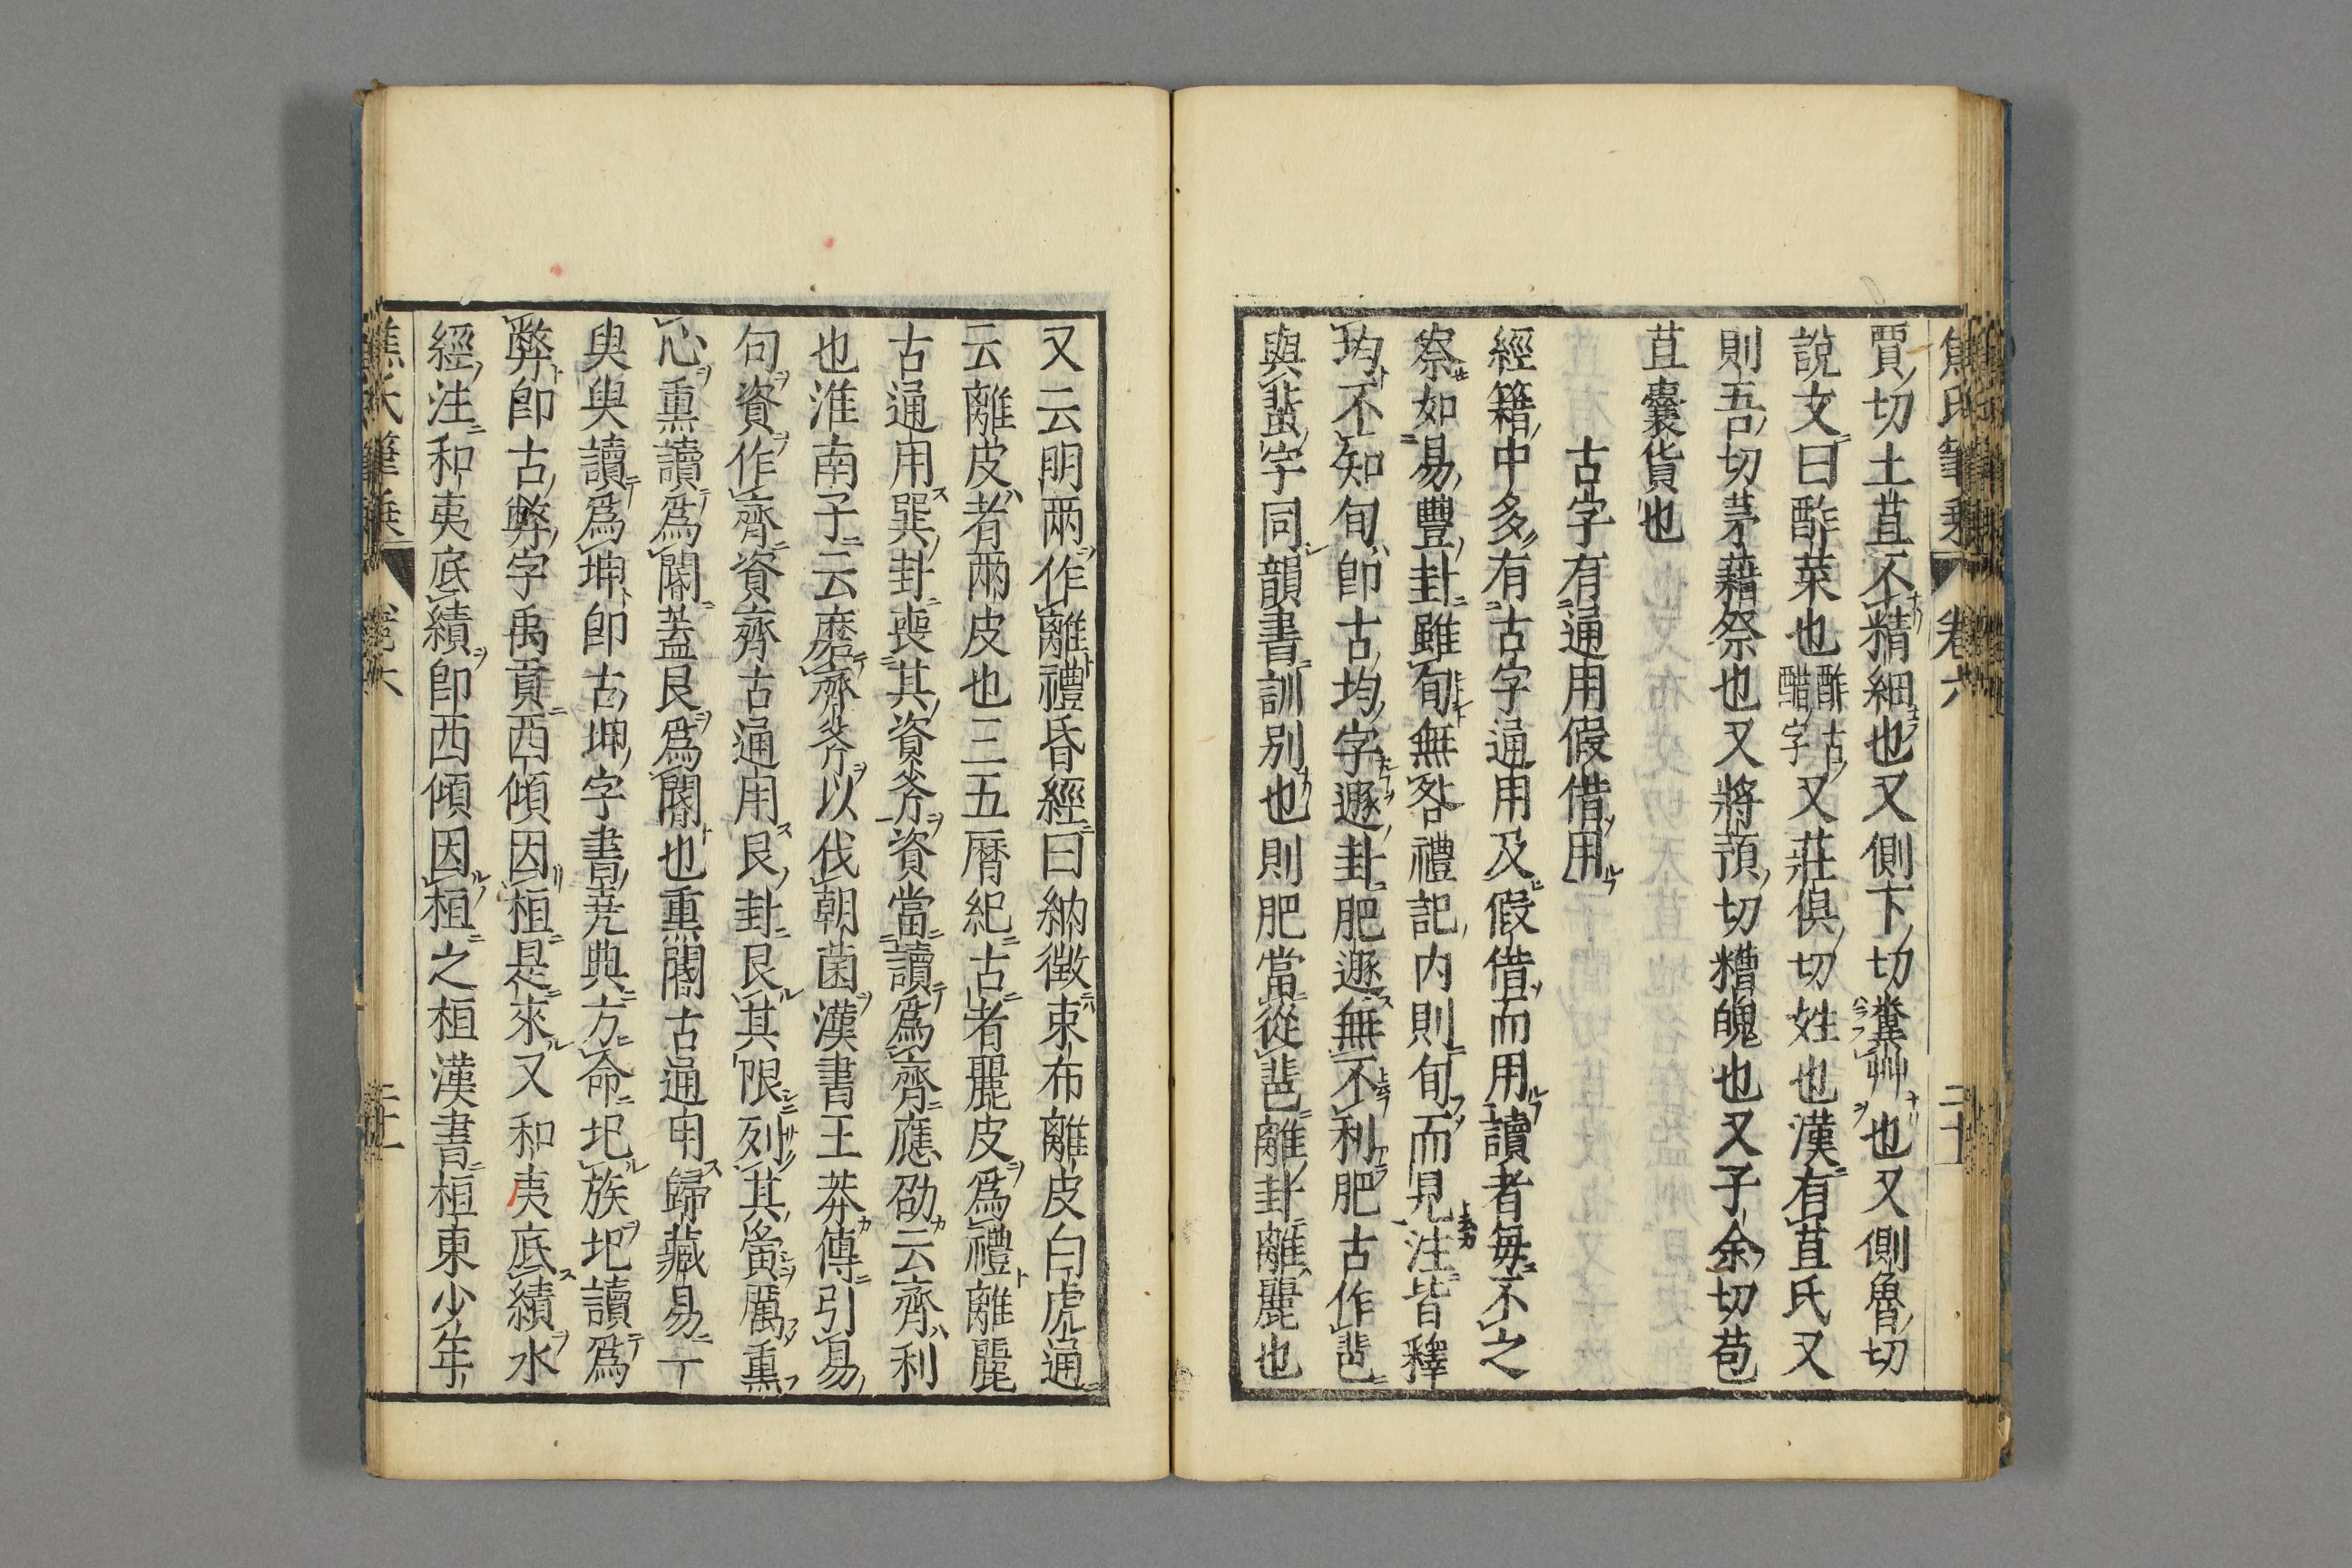 焦氏筆乘 卷六 二十
賈切土苴不精細也又側下切糞艸也又側魯切
說文曰酢菜也酢古醋字又莊俱切姓也漢有苴氏又
則吾切茅藉祭也又將預切糟魄也又子余切苞
苴囊貨也
古字有通用假借用
經籍中多有古字通用及假借而用讀者每不之
察如易豐卦雖旬無咎禮記内則旬而見注皆釋
均不知旬即古均字遯卦肥遯無不利肥古作蜚
與蜚字同韻書訓別也則肥當從蜚離卦離麗也
又云明兩作離禮昏經曰納徴束布離皮白虎通
云離皮者兩皮也三五曆紀古者麗皮爲禮離麗
古通用巽卦喪其資斧資當讀爲齊應劭云齊利
也淮南子云磨齊斧以伐朝菌漢書王莽傳引易
句資作齊資齊古通用艮卦艮其限列其夤厲熏
心熏讀爲閽蓋艮爲閽也熏閽古通用歸藏易一
㚰與讀爲坤即古坤字書堯典方命圯族圯讀爲
弊即古弊字禹貢西傾因桓是來又和夷底績水
經注和夷底績即西傾因桓之桓漢書桓東少年